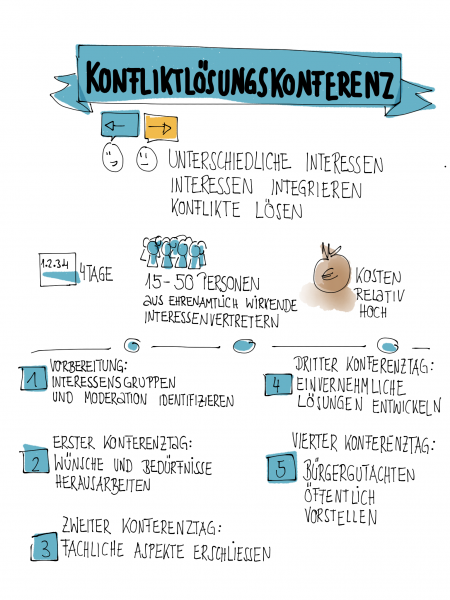 KONFLIKTLÖSUNGSKONFERENZ
UNTERSCHIEDLICHE INTERESSEN
INTERESSEN INTEGRIEREN
KONFLIKTE LÖSEN
1.2.3.4
4 TAGE
15-50 PERSONEN
AUS EHRENAMTLICH WIRKENDE
INTERESSENVERTRETERN
€
KOSTEN
RELATIV
HOCH
1
VORBEREITUNG:
INTERESSENSGRUPPEN
UND MODERATION IDENTIFIZIEREN
2
ERSTER KONFERENZTAG:
WÜNSCHE UND BEDÜRFNISSE
HERAUSARBEITEN
3
ZWEITER KONFERENZTAG:
FACHLICHE ASPEKTE ERSCHLIESSEN
4
DRITTER KONFERENZTAG:
EINVERNEHMLICHE
LÖSUNGEN ENTWICKELN
5
VIERTER KONFERENZTAG:
BÜRGERGUTACHTEN
ÖFFENTLICH
VORSTELLEN